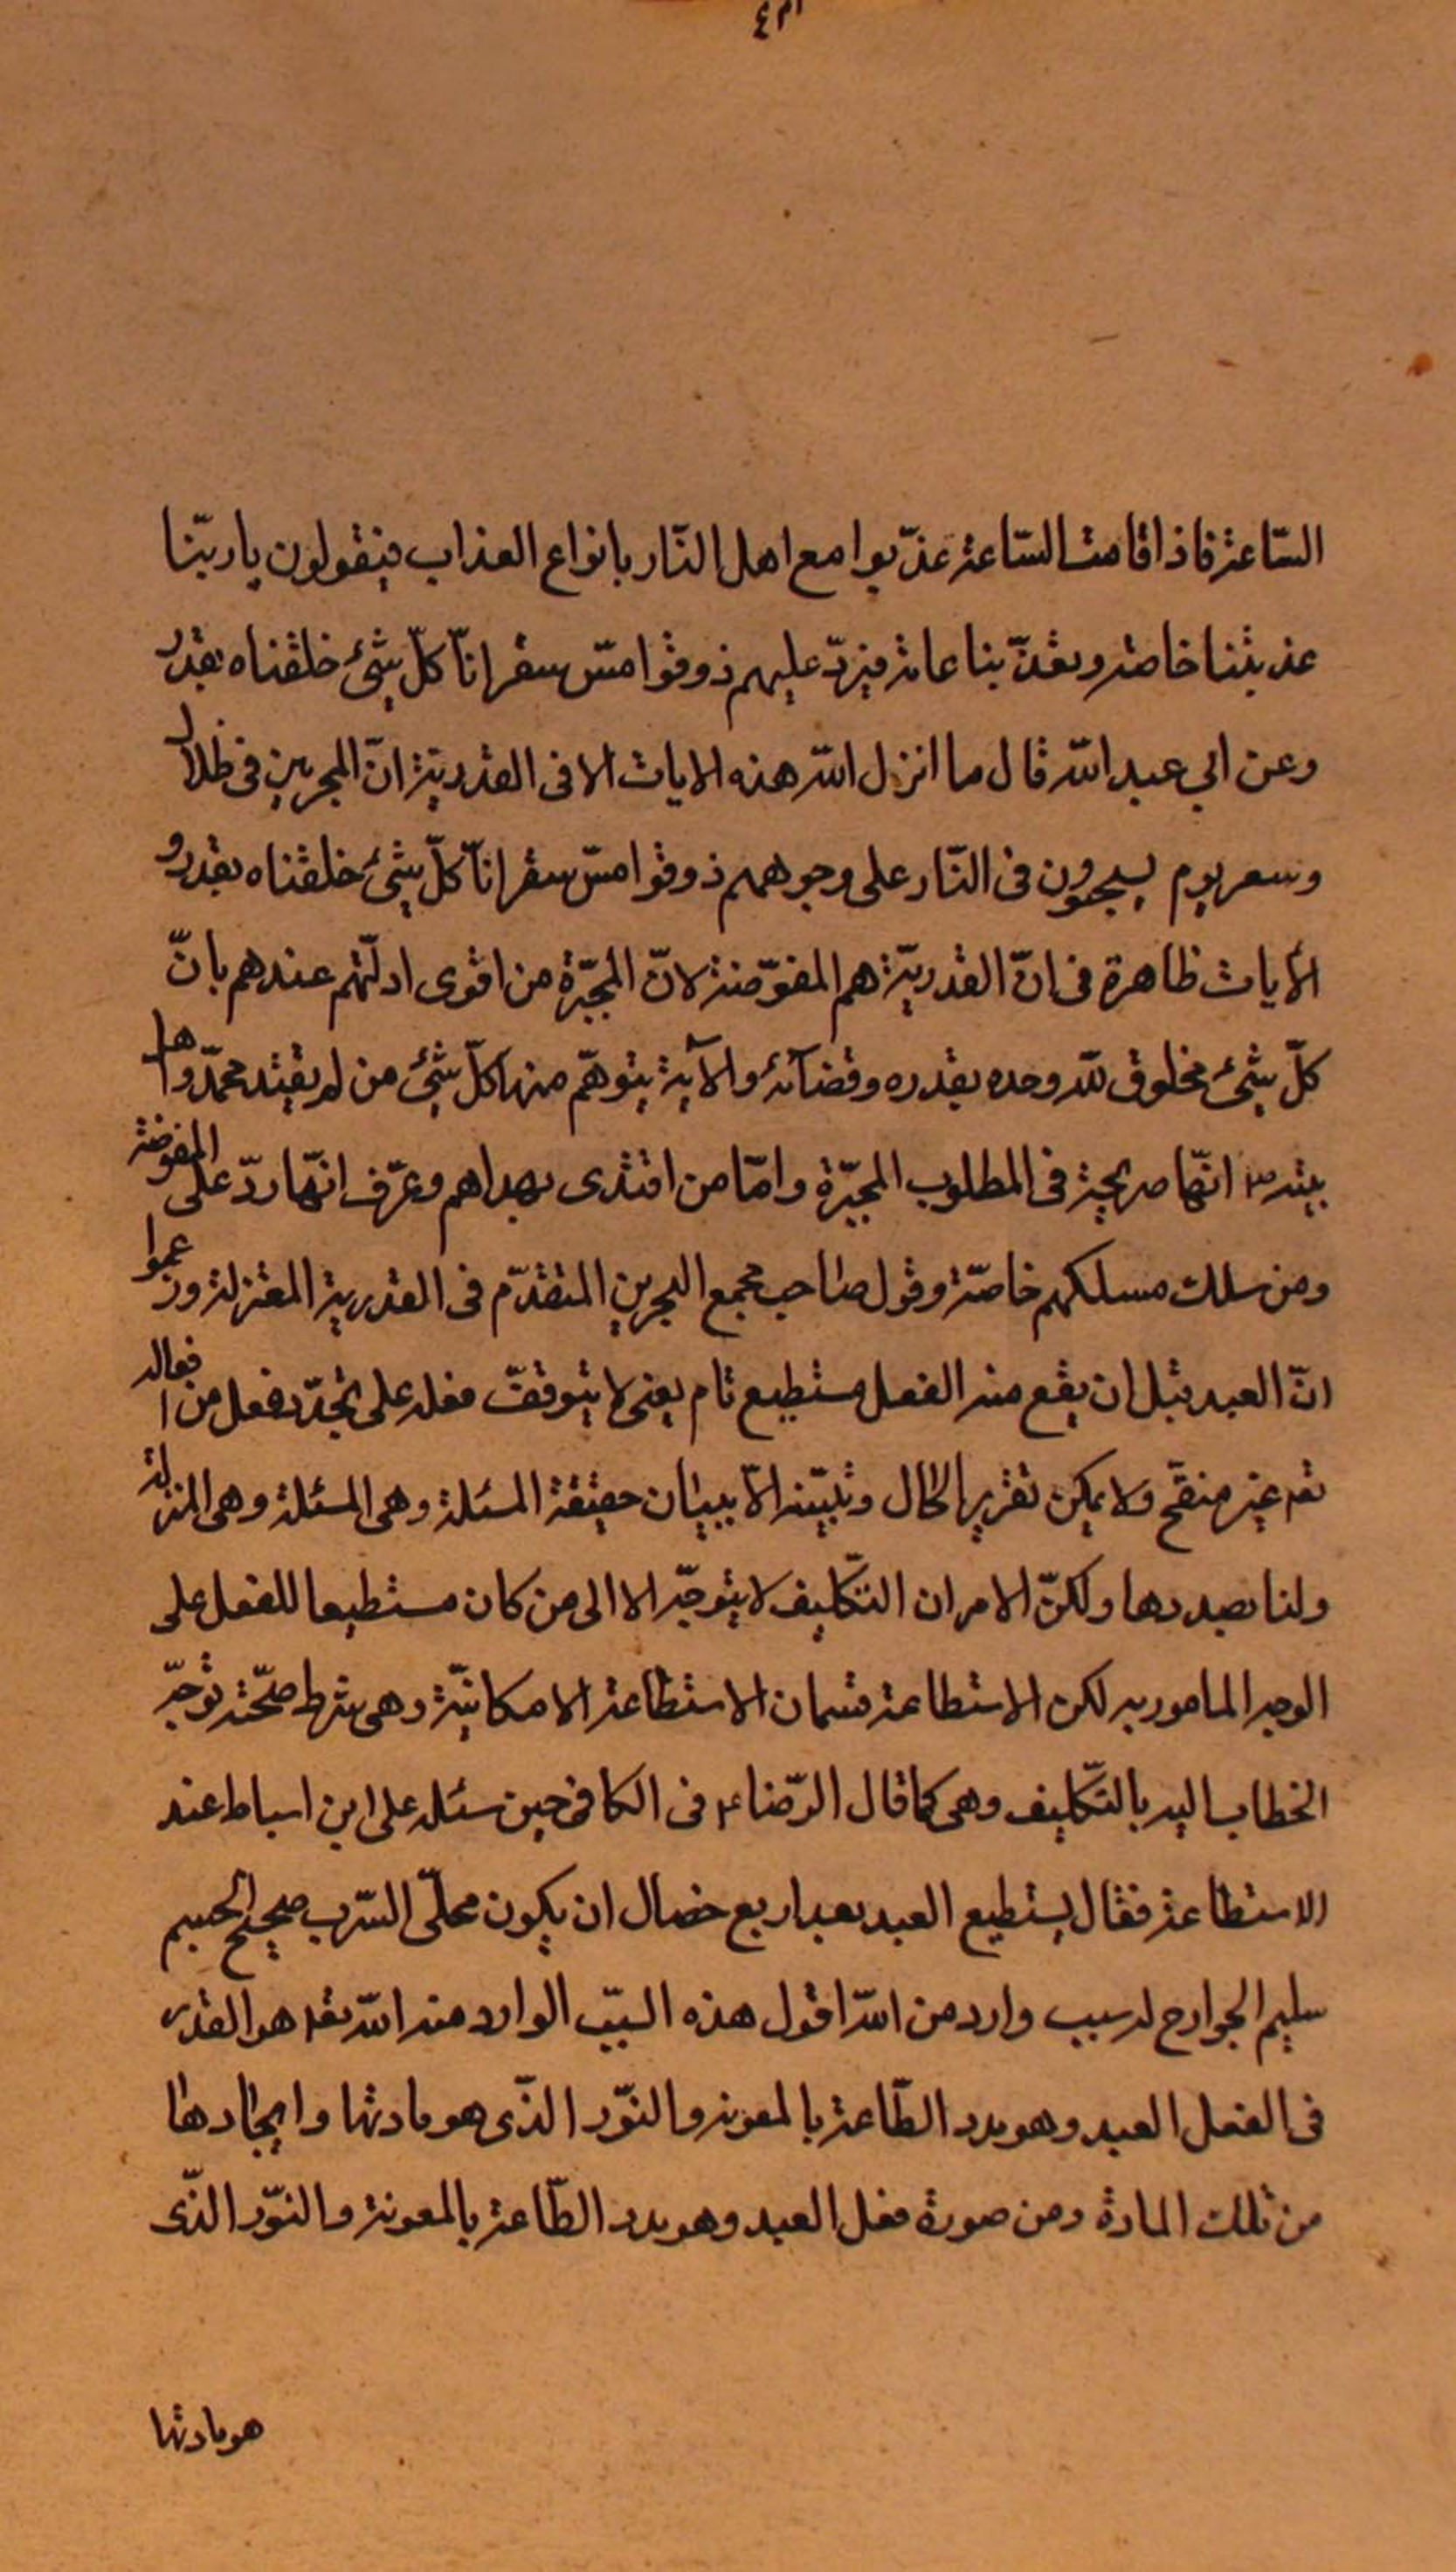 السّاعة فاذا قامت السّاعة عذّبوا مع اهل النّار بانواع العذاب فيقولون يا ربّنا
عذبتنا خاصة و تعذّبنا عامة فيردّ عليهم ذوقوا مسّ سقر انّا كلّ شئ خلقناه بقدر
وعن ابي عبد الله قال ما انزل الله هذه الايات الا فى القدريّة انّ المجرمين فى ظلال
وسعر يوم يسحبون فى النّار على وجوههم ذوقوا مسّ سقر انّا كلّ شئ خلقناه بقدر و
الأيات ظاهرة فى انّ القدريّة هم المفوّضة لانّ المجبّرة من اقوى ادلّتهم عندهم بانّ
كلّ شئ مخلوق لله وحده بقدره وقضآئه والآية يتوهّم منها كلّ شئ من لم يقتد بمحمّد واهل
بيته ص انّها صريحة فى المطلوب المجبّرة وامّا من اقتدى بهداهم وعرّف انّها ردّ على المفوضة
ومن سلك مسلكهم خاصّة وقول صاحب مجمع البحرين المتقدّم فى القدرية المعتزلة وزعموا
انّ العبد قبل ان يقع منه الفعل مستطيع تام يعنى لا يتوقفّ فعله على تجدّد فعل من افعاله
تعه غير منقّح ولا يمكن تقرير الحال وتبيّنه الاّ ببيان حقيقة المسئلة وهى المسئلة وهى المنزلة
ولنا بصددها ولكنّ الامر ان التّكليف لا يتوجّه الا الى من كان مستطيعا للفعل على
الوجه المامور به لكن الاستطاعة قسمان الاستطاعة الامكانيّة وهى شرط صحّته توجّه
الخطاب اليه بالتّكليف وهى كما قال الرّضا ع فى الكافى حين سئله على ابن اسباط عند
الاستطاعة فقال يستطيع العبد بعد اربع خصال ان يكون مخلّى السّرب صحيح الجسم
سليم الجوارح له سبب وارد من الله اقول هذه السبّب الوارد منه الله تعه هو القدر
فى الفعل العبد وهو مدد الطّاعة بالمعونة والنوّر الذّى هو مادتها وايجادها
من تلك المادة ومن صورة فعل العبد وهو مدد الطّاعة بالمعونة والنوّر الذّى
هو مادتها